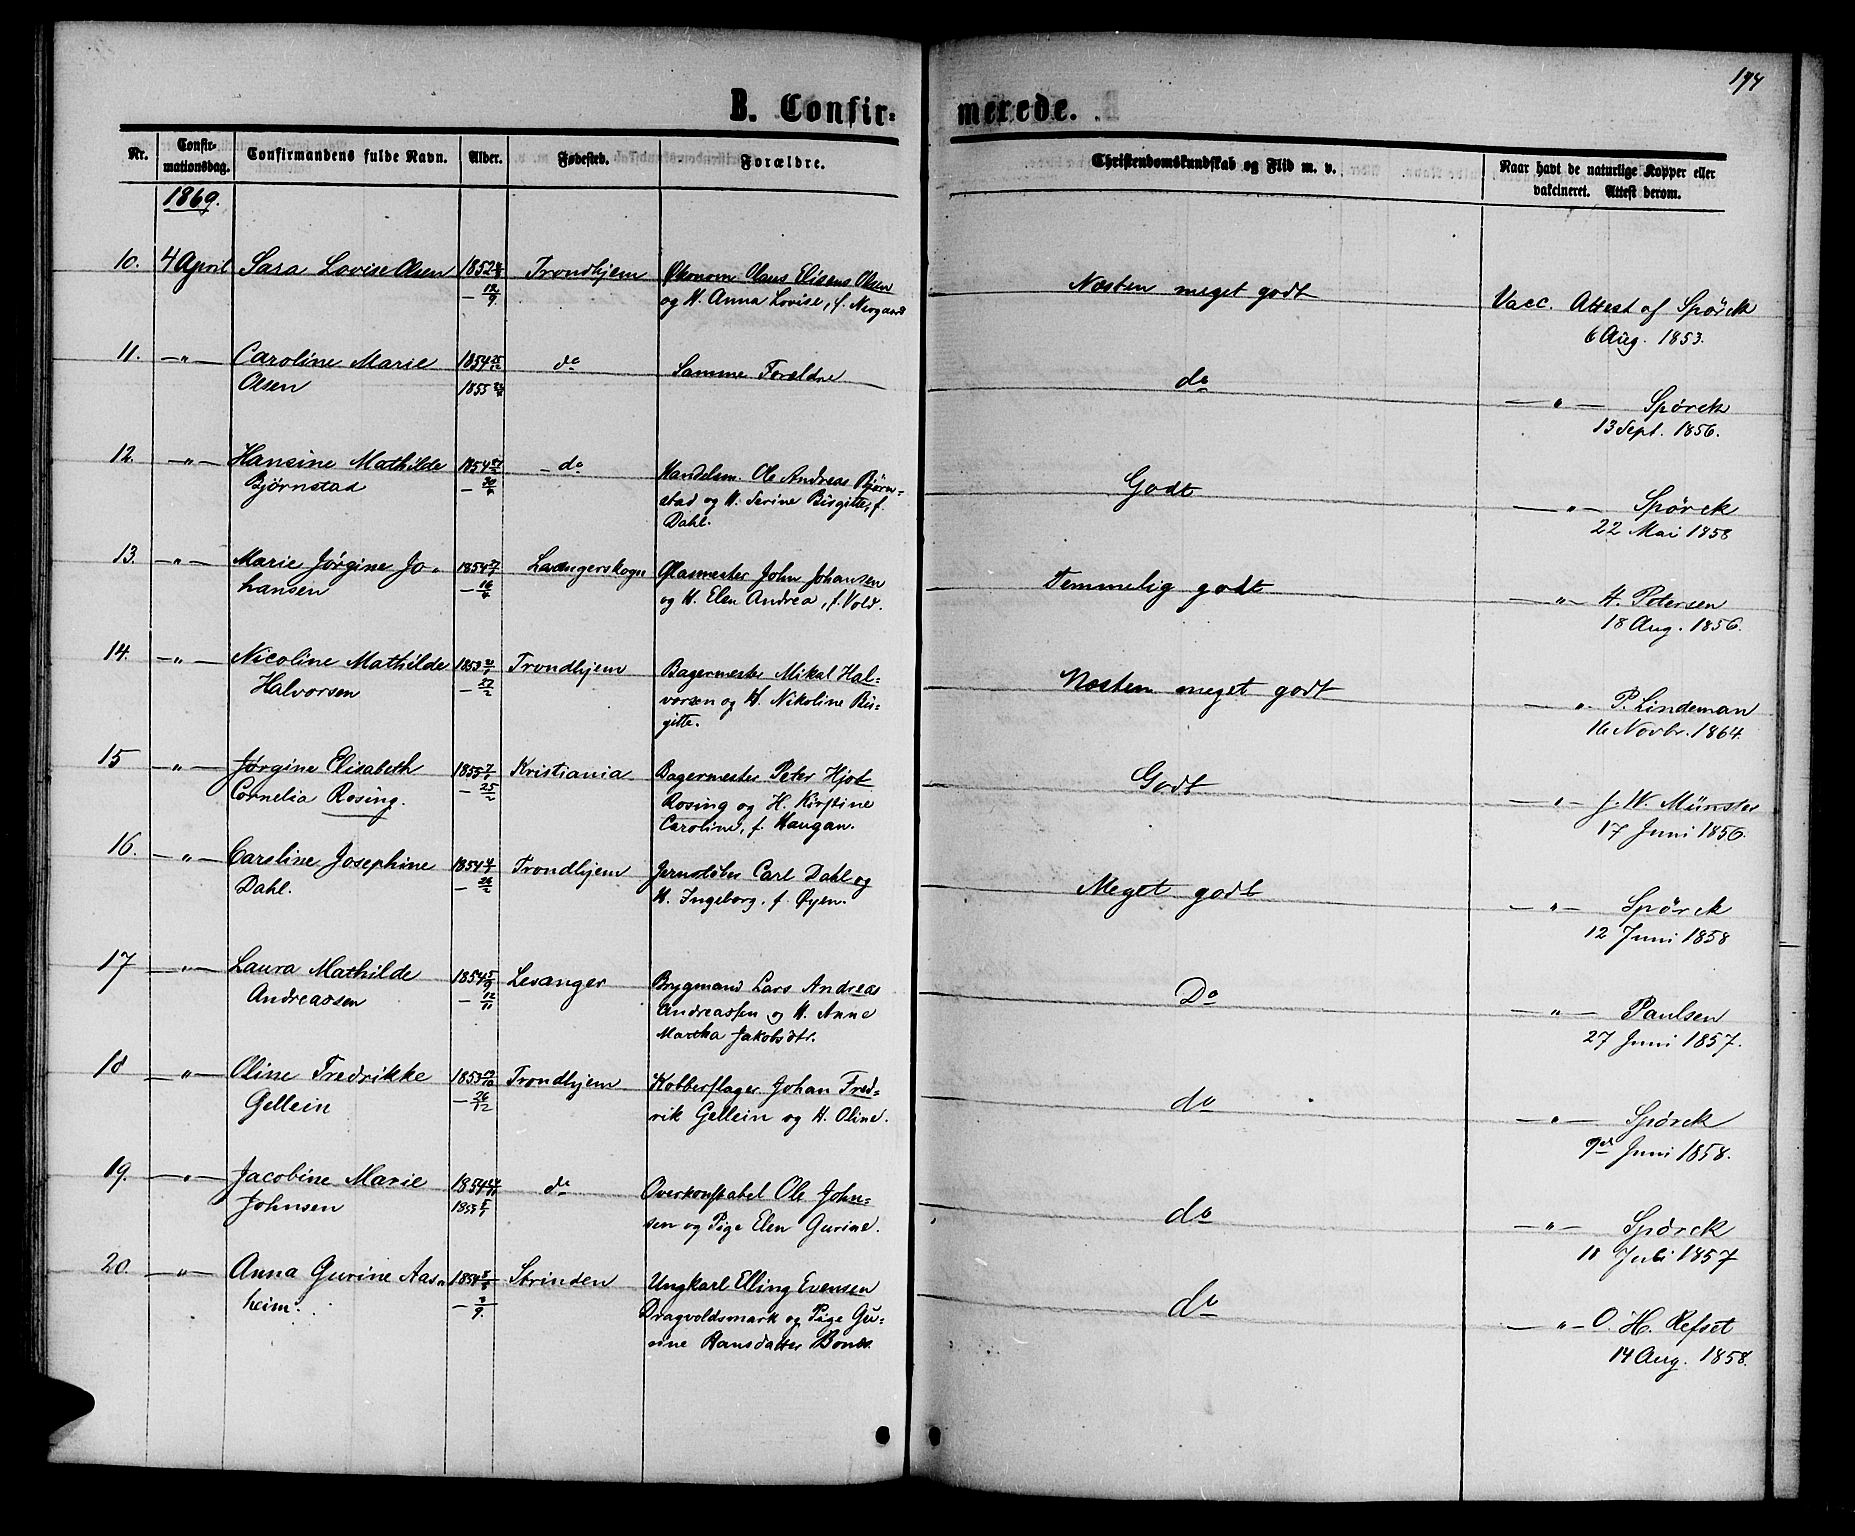 194
B. Confir- merede.
Nr. Confir- mationsdag. Confirmandens fulde Navn. Alder. Fødested. Forældre. Christendomskundskab og Flid m. v. Naar havt de naturlige Kopper eller vakcineret. Attest derom.
1869.
10. 4 April Sara Lovise Olsen 1852 Trondhjem Økonom Olaus Eliseus Olsen Næsten meget godt Vacc. Attest af Spörck
- 12/9 og H. Anna Lovise, f. Norgaard 6 Aug. 1853.
11. -"- Caroline Marie 1854 do Samme Forældre do -"- Spörck
Olsen 1855 13 Sept. 1856.
12. -"- Hansine Mathilde 1854 - do Handelsm. Ole Andreas Bjørn- Godt -"- Spörck
Bjørnstad stad og H. Serine Birgitte, f. 22 Mai 1858
Dahl.
13. -"- Marie Jørgine Jo- 1854 Glasmester John Johansen Temmelig godt -"- H. Petersen
hansen - 16/4 og H. Elen Andrea, f. Vold. 18 Aug. 1856.
14. -"- Nicoline Mathilde 1853 Trondhjem Bagermester Mikal Hal- Næsten meget godt -"- P. Lindeman
Halvorsen - 27/2 vorsen og H. Nikoline Bir- 16 Novbr. 1864.
gitte.
15 -"- Jørgine Elisabeth 1855 7/1 Kristiania Bagermester Peter Hjot Godt -"- J. W. Münster
Cornelia Rosing. - 25/2 Rosing og H. Kirstine 17 Juni 1856.
Caroline, f. Haugan.
16. -"- Caroline Josephine 1854 Trondhjem Jernstøber Carl Dahl og Meget godt -"- Spörck
Dahl. - 26/2 H. Ingeborg, f. Øyen. 12 Juni 1858
17 -"- Laura Mathilde 1854 5/9 Levanger Brygmand Lars Andreas Do -"- Paulsen
Andreassen - 12/11 Andreassen og H. Anne 27 Juni 1857.
Martha Jakobsdtr.
18 -"- Oline Fredrikke 1853 Trondhjem Kobberslager Johan Fred- do -"- Spörck
Gellein - 26/12 rik Gellein og H. Oline. 9de Juni 1858.
19. -"- Jacobine Marie 1854 do Overkonstabel Ole John- do -"- Spörck
Johnsen 1855 5/1 sen og Pige Elen Gurine. 11 Juli 1857
20. -"- Anna Gurine Aas- 1854 Strinden Ungkarl Elling Evensen do -"- O. H. Refset
heim. Dragvoldsmark og Pige Gu- 14 Aug. 1858.
rine Hansdatter